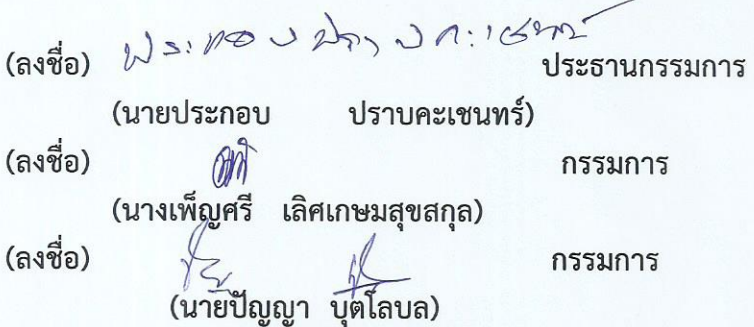 (ลงชื่อ) ประกอบ ปราบคะเชนทร์ ประธานกรรมการ
(นายประกอบ ปราบคะเชนทร์)
(ลงชื่อ) กรรมการ
(นางเพ็ญศรี เลิศเกษมสุขสกุล)
(ลงชื่อ) กรรมการ
(นายปัญญา บุตโลบล)